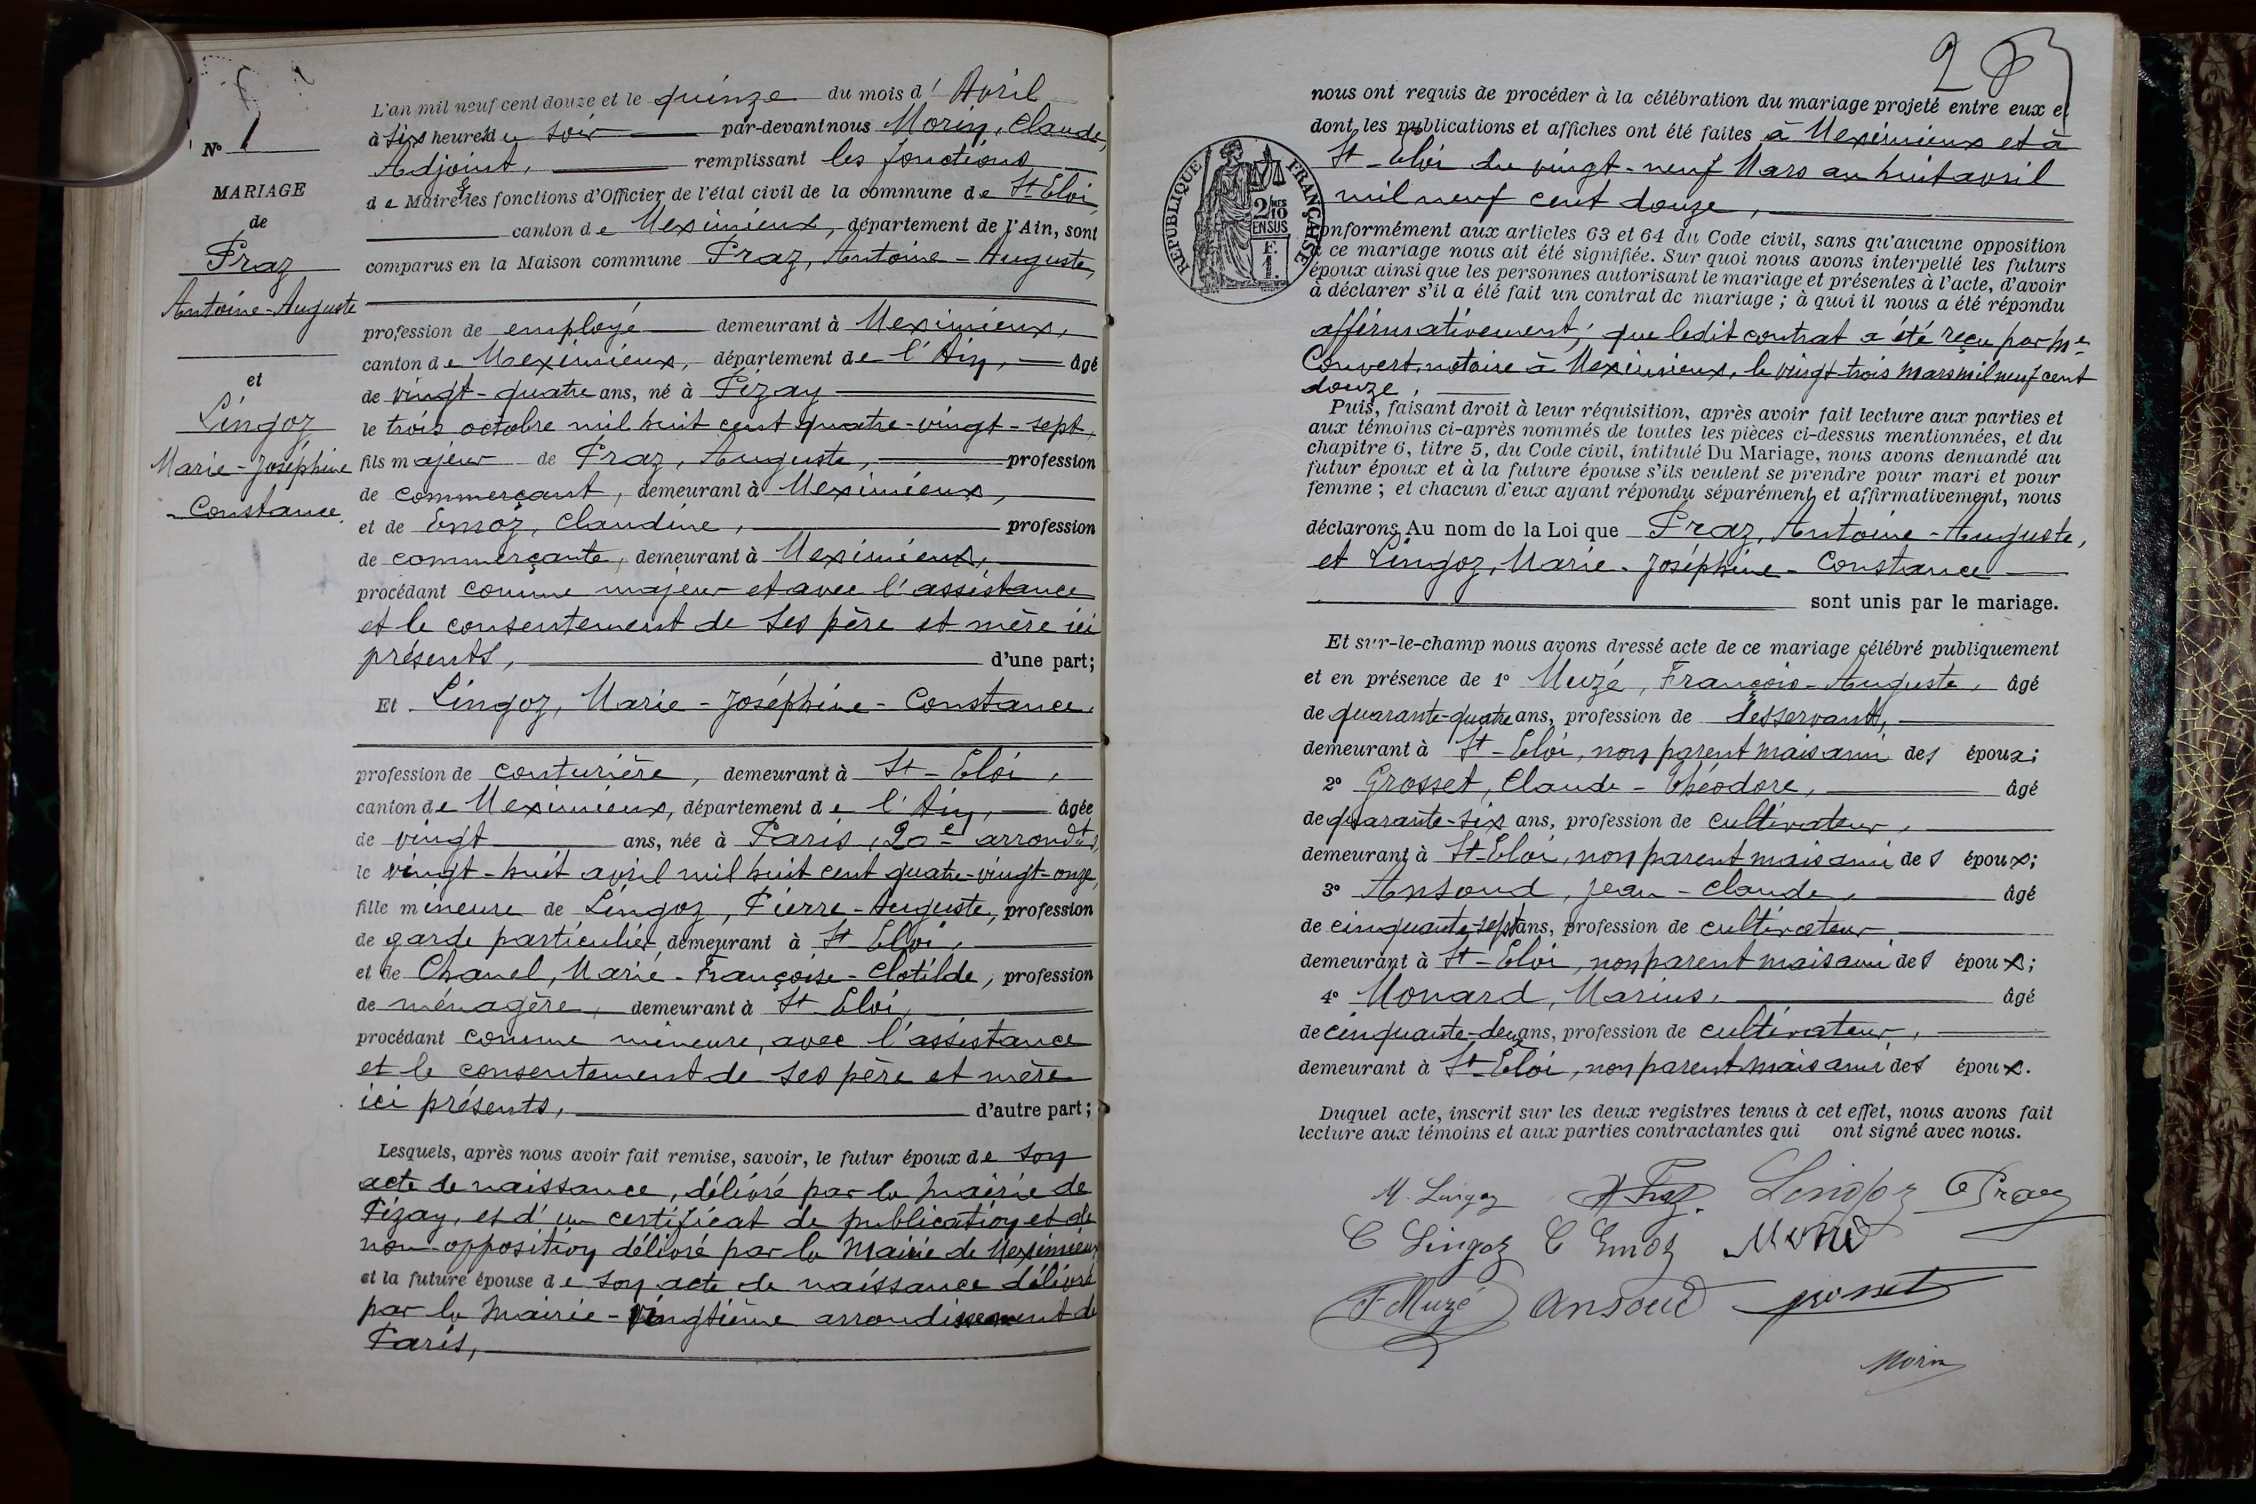 N° 1
MARIAGE
de
Praz
Antoine-Auguste
et
Lingoz
Marie-Joséphine
Constance.
L'an mil neuf cent douze et le quinze du mois d'Avril
à six heures du soir par-devant nous Morin, Claude,
Adjoint, remplissant les fonctions
de Maire & les fonctions d'Officier de l'état civil de la commune de St-Eloi,
canton de Meximieux, département de l'Ain, sont
comparus en la Maison commune Praz, Antoine-Auguste,
profession de employé demeurant à Meximieux,
canton de Meximieux, département de l'Ain, âgé
de vingt-quatre ans, né à Pizay
le trois octobre mil huit cent quatre-vingt-sept,
fils majeur de Praz, Auguste, profession
de commerçant, demeurant à Meximieux,
et de Emoz, Claudine, profession
de commerçante, demeurant à Meximieux,
procédant comme majeur et avec l'assistance
et le consentement de ses père et mère ici
présents, d'une part;
Et Lingoz, Marie-Joséphine-Constance,
profession de couturière, demeurant à St-Eloi,
canton de Meximieux, département de l'Ain, âgée
de vingt ans, née à Paris, 20e arrondt,
le vingt-huit avril mil huit cent quatre-vingt-onze,
fille mineure de Lingoz, Pierre-Auguste, profession
de garde particulier demeurant à St Eloi,
et de Chanel, Marie-Françoise-Clotilde, profession
de ménagère, demeurant à St Eloi,
procédant comme mineure, avec l'assistance
et le consentement de ses père et mère
ici présents, d'autre part;
Lesquels, après nous avoir fait remise, savoir, le futur époux de son
acte de naissance, délivré par la mairie de
Pizay, et d'un certificat de publication et de
non-opposition délivré par la Mairie de Meximieux
et la future épouse de son acte de naissance délivré
par la Mairie-vingtième arrondissement de
Paris,
2
nous ont requis de procéder à la célébration du mariage projeté entre eux et
dont les publications et affiches ont été faites à Meximieux et à
St-Eloi du vingt-neuf Mars au huit avril
mil neuf cent douze,
RÉPUBLIQUE FRANÇAISE
2/10
EN SUS
F.
1.
conformément aux articles 63 et 64 du Code civil, sans qu'aucune opposition
à ce mariage nous ait été signifiée. Sur quoi nous avons interpellé les futurs
époux ainsi que les personnes autorisant le mariage et présentes à l'acte, d'avoir
à déclarer s'il a été fait un contrat de mariage; à quoi il nous a été répondu
affirmativement; que ledit contrat a été reçu par Me
Convert, notaire à Meximieux, le vingt-trois mars mil neuf cent
douze,
Puis, faisant droit à leur réquisition, après avoir fait lecture aux parties et
aux témoins ci-après nommés de toutes les pièces ci-dessus mentionnées, et du
chapitre 6, titre 5, du Code civil, intitulé Du Mariage, nous avons demandé au
futur époux et à la future épouse s'ils veulent se prendre pour mari et pour
femme; et chacun d'eux ayant répondu séparément et affirmativement, nous
déclarons Au nom de la Loi que Praz, Antoine-Auguste,
et Lingoz, Marie-Joséphine-Constance
sont unis par le mariage.
Et sur-le-champ nous avons dressé acte de ce mariage célébré publiquement
et en présence de 1° Muzé, François-Auguste, âgé
de quarante-quatre ans, profession de desservant,
demeurant à St-Eloi, non parent mais ami des époux;
2° Grosset, Claude-Théodore, âgé
de quarante-six ans, profession de cultivateur,
demeurant à St-Eloi, non parent mais ami des époux;
3° Ansoud, Jean-Claude, âgé
de cinquante-sept ans, profession de cultivateur
demeurant à St-Eloi, non parent mais ami des époux;
4° Monard, Marius, âgé
de cinquante-deux ans, profession de cultivateur,
demeurant à St-Eloi, non parent mais ami des époux.
Duquel acte, inscrit sur les deux registres tenus à cet effet, nous avons fait
lecture aux témoins et aux parties contractantes qui ont signé avec nous.
M. Lingoz A. Praz. Lingoz Praz
C Lingoz C Emoz
F Muzé Ansoud grosset
Morin